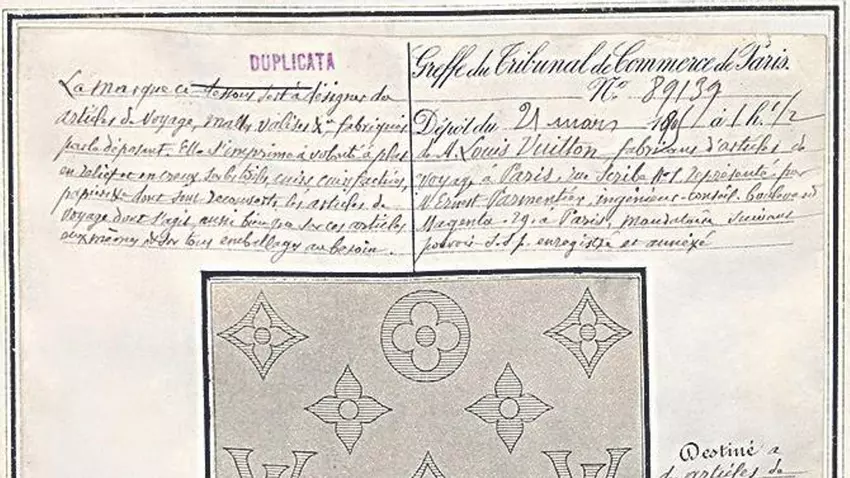 DUPLICATA
La marque ci-dessous sert à désigner des
articles de voyage, malles, valises &a fabriqués
par le déposant. Elle s'imprime à volonté à plat
en relief et en creux sur les toiles, cuirs, cuirs factices,
papiers &a dont sont recouverts les articles de
voyage dont s'agit, aussi bien que sur ces articles
eux-mêmes & sur tous emballages au besoin.
Greffe du Tribunal de Commerce de Paris.
No 89139
Dépôt du 21 mars à 1 h. 1/2
de M. Louis Vuitton fabricant d'articles de
voyage à Paris, rue Scribe No 1, représenté par
M. Ernest Parmentier, ingénieur-conseil, boulevard
Magenta, 29, à Paris, mandataire suivant
pouvoir s.s.p. enregistré et annexé
Destiné à
d'articles de